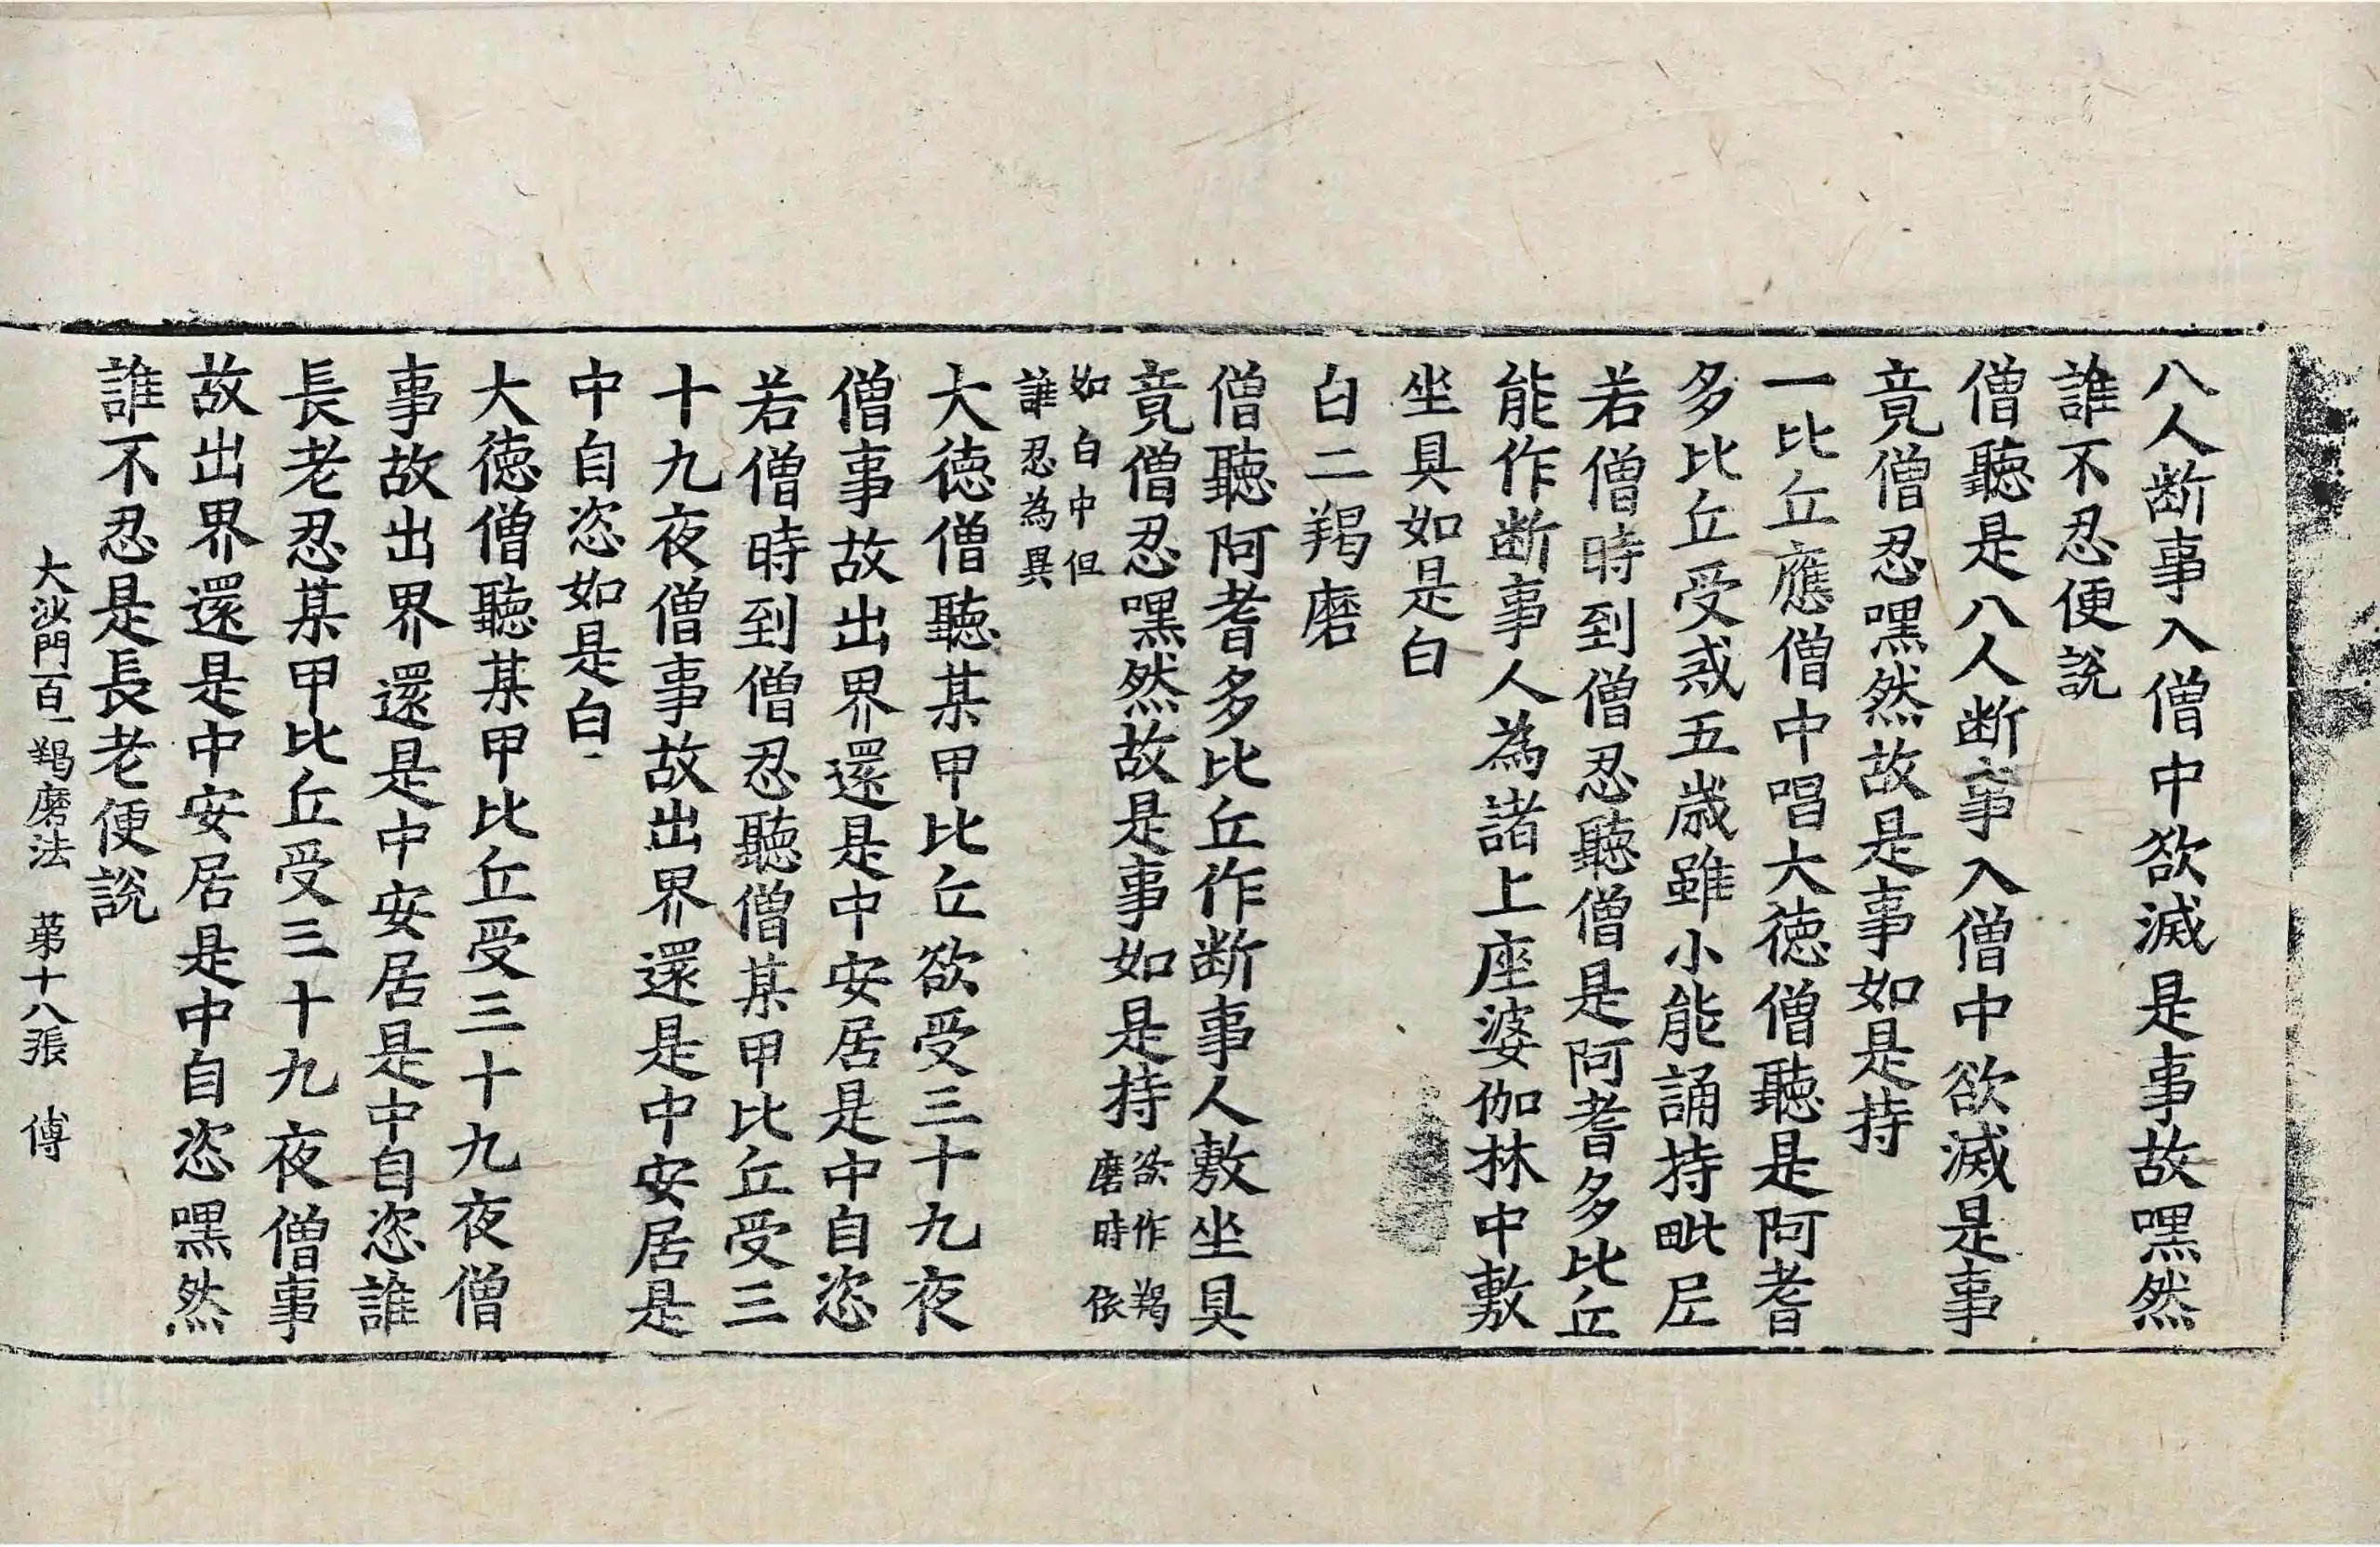 八人断事入僧中欲滅是事故嘿然
誰不忍便説
僧聽是八人断事入僧中欲滅是事
竟僧忍嘿然故是事如是持
一比丘應僧中唱大徳僧聽是阿耆
多比丘受戒五歳雖小能誦持毗尼
若僧時到僧忍聽僧是阿耆多比丘
能作断事人為諸上座婆伽林中敷
坐具如是白
白二羯磨
僧聽阿耆多比丘作断事人敷坐具
竟僧忍嘿然故是事如是持欲作羯磨時依
如白中但誰忍為異
大徳僧聽某甲比丘欲受三十九夜
僧事故出界還是中安居是中自恣
若僧時到僧忍聽僧某甲比丘受三
十九夜僧事故出界還是中安居是
中自恣如是白
大徳僧聽某甲比丘受三十九夜僧
事故出界還是中安居是中自恣誰
長老忍某甲比丘受三十九夜僧事
故出界還是中安居是中自恣嘿然
誰不忍是長老便説
大沙門百一羯磨法 苐十八張 傅